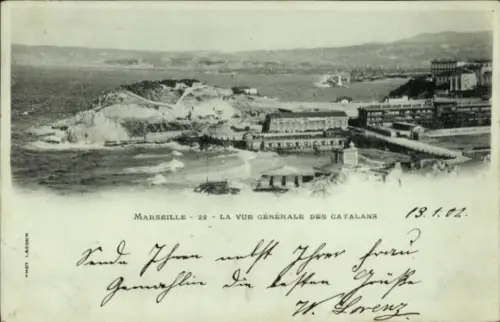 MARSEILLE - 22 - LA VUE GÉNÉRALE DES CATALANS
13.1.02.
Sende Ihnen nebst Ihrer Frau
Gemahlin die besten Grüße
W. Lorenz.
PHOT LACOUR